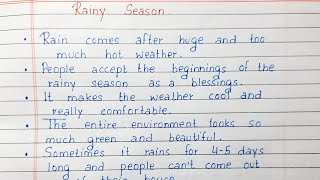 Rainy Season
• Rain comes after huge and too
much hot weather.
• People accept the beginnings of the
rainy season as a blessings.
• It makes the weather cool and
really comfortable.
• The entire environment looks so
much green and beautiful.
• Sometimes it rains for 4-5 days
long and people can't come out
of their house